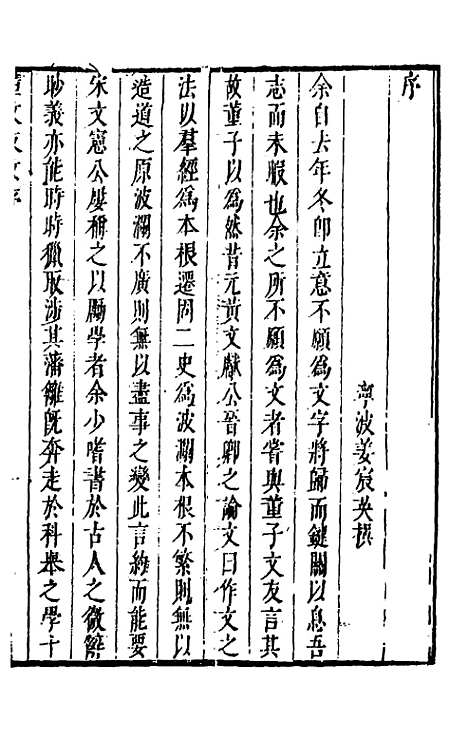 序
寧波姜宸英撰
余自去年冬卽立意不願爲文字將歸而鍵關以息吾
志而未暇也余之所不願爲文者嘗與董子文友言其
故董子以爲然昔元黃文獻公晉卿之論文曰作文之
法以羣經爲本根遷固二史爲波瀾本根不繁則無以
造道之原波瀾不廣則無以盡事之變此言約而能要
宋文憲公屢稱之以勵學者余少嗜書於古人之微辭
眇義亦能時時獵取涉其藩籬旣奔走於科舉之學十
董文友文序